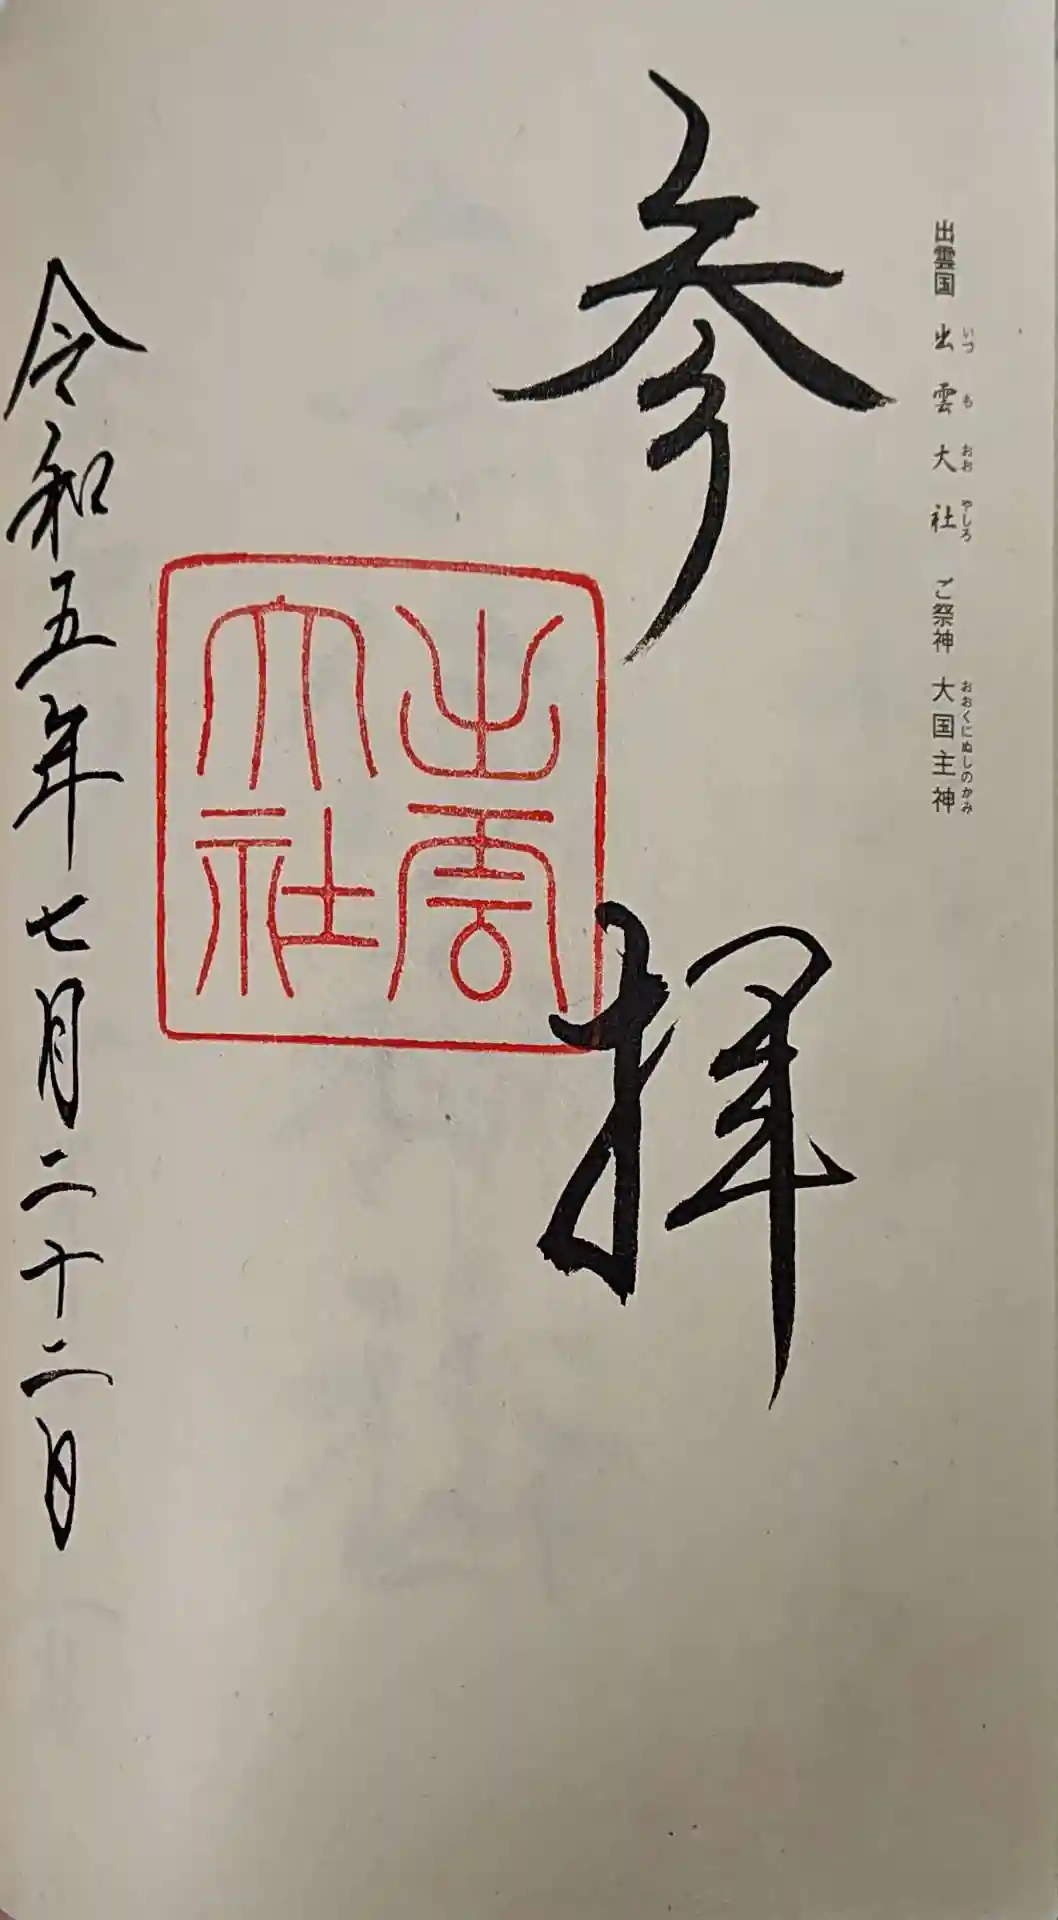 出雲国 出雲大社 ご祭神 大国主神
いづ も おお やしろ おおくにぬしのかみ
参拝
出雲
大社
令和五年七月二十二日